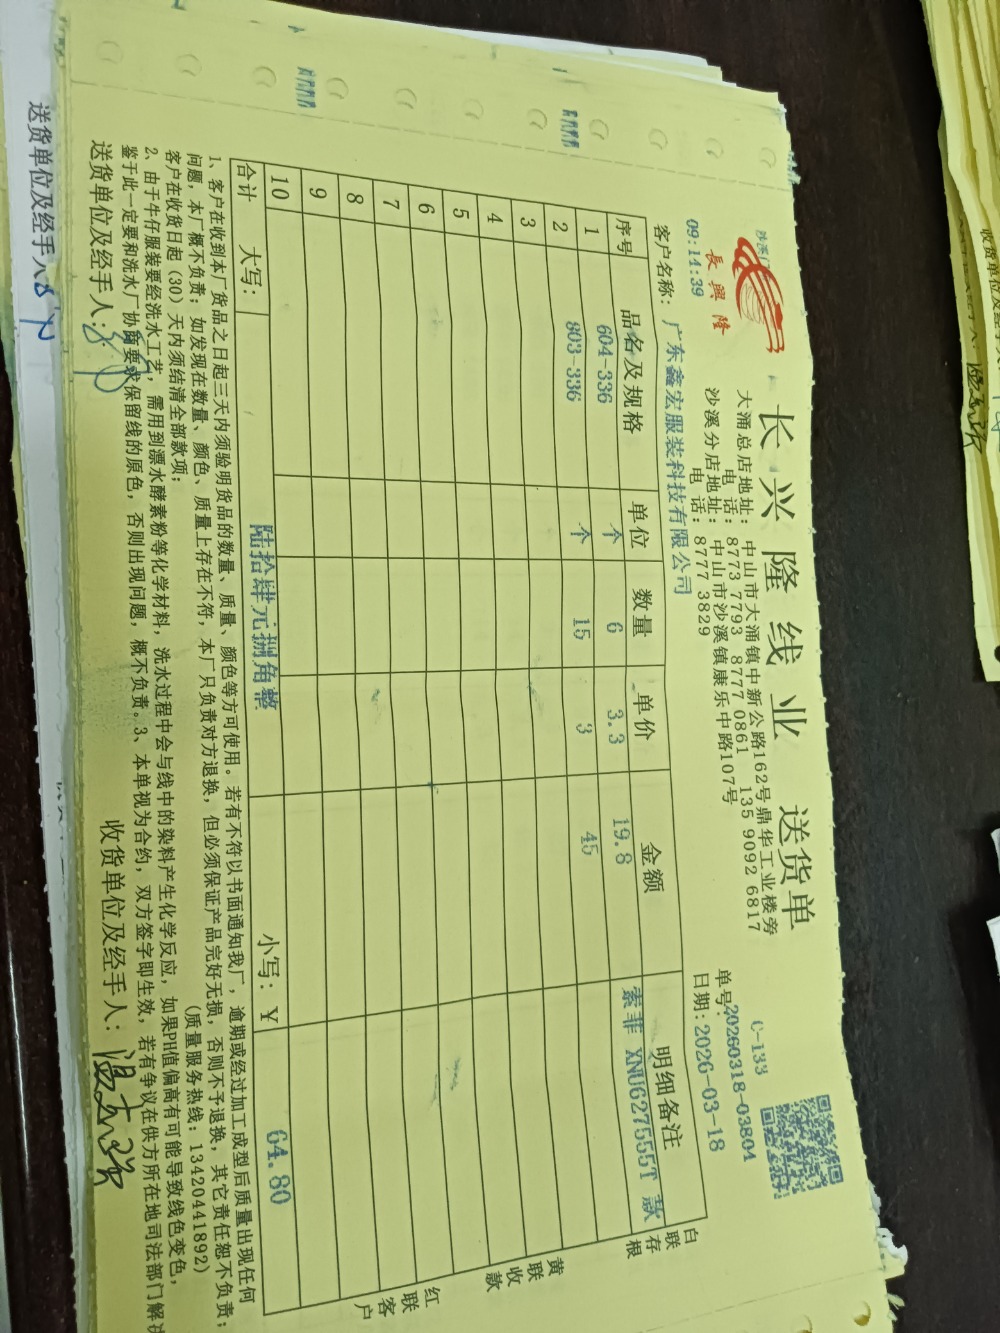 长兴隆线业 送货单
長興隆
大涌总店地址：中山市大涌镇中新公路162号鼎华工业楼旁
电话：8773 7793 8777 0861 135 9092 6817
沙溪分店地址：中山市沙溪镇康乐中路107号
电话：8777 3829
C-133
单号:20260318-03804
日期：2026-03-18
09:14:39
客户名称：广东鑫宏服装科技有限公司
序号 品名及规格 单位 数量 单价 金额 明细备注
1 604-336 个 6 3.3 19.8 索菲 XNU627555T 款
2 803-336 个 15 3 45
3
4
5
6
7
8
9
10
合计 大写：陆拾肆元捌角整 小写：¥ 64.80
白联存根
黄联收款
红联客户
1、客户在收到本厂货品之日起三天内须验明货品的数量、质量、颜色等方可使用。若有不符以书面通知我厂，逾期或经过加工成型后质量出现任何
问题，本厂概不负责；如发现在数量、颜色、质量上存在不符，本厂只负责对方退换，但必须保证产品完好无损，否则不予退换，其它责任恕不负责；
客户在收货日起（30）天内须结清全部款项； （质量服务热线：13420441892）
2、由于牛仔服装要经洗水工艺，需用到漂水酵素粉等化学材料，洗水过程中会与线中的染料产生化学反应，如果PH值偏高有可能导致线色变色，
鉴于此一定要和洗水厂协商要求保留线的原色，否则出现问题，概不负责。3、本单视为合约，双方签字即生效，若有争议在供方所在地司法部门解决
送货单位及经手人： 收货单位及经手人：
送货单位及经手人
收货单位及经